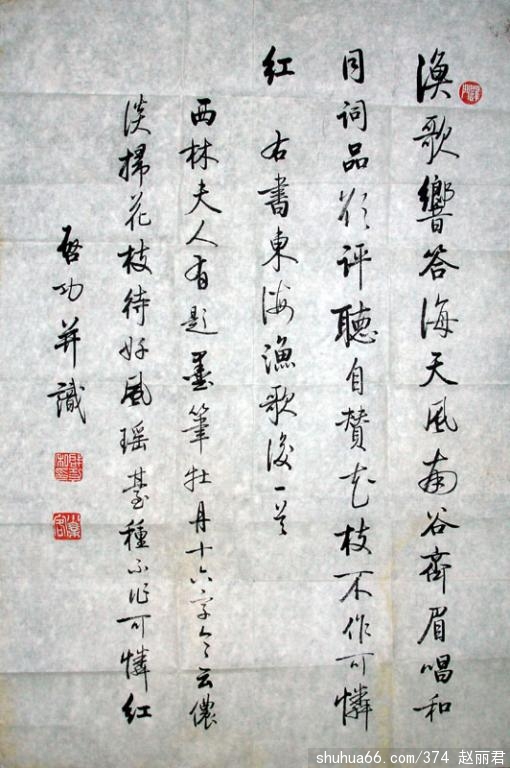 漁歌響答海天風南谷齊眉唱和
同詞品欲評聽自贊花枝不作可憐
紅 右書東海漁歌後一首
西林夫人有題墨筆牡丹十六字令云儂
淡掃花枝待好風瑤臺種不作可憐紅
啓功并識
shuhua66.com/374 赵丽君